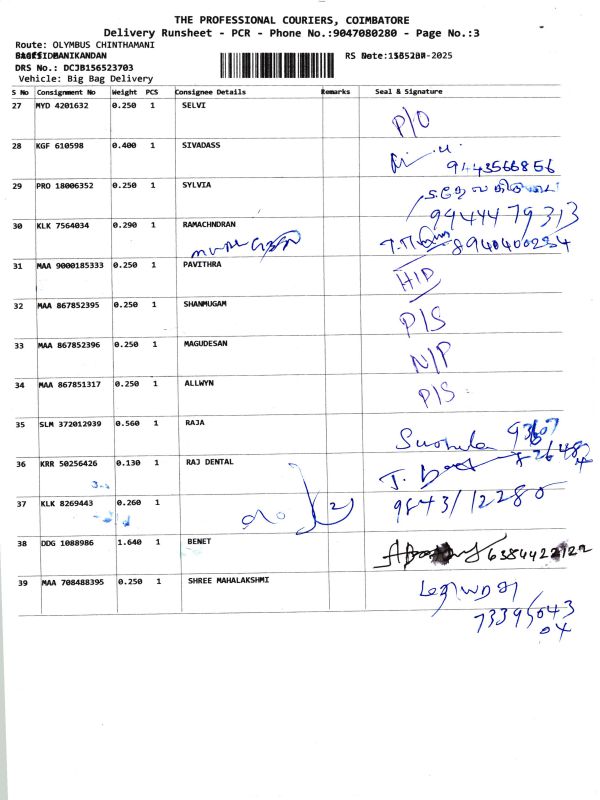 THE PROFESSIONAL COURIERS, COIMBATORE
Delivery Runsheet - PCR - Phone No.:9047080280 - Page No.:3
Route: OLYMBUS CHINTHAMANI
DRS No.: DCJB156523703
Vehicle: Big Bag Delivery
S No Consignment No Weight PCS Consignee Details Remarks Seal & Signature
27 MYD 4201632 0.250 1 SELVI P/O
28 KGF 610598 0.400 1 SIVADASS
9443566856
29 PRO 18006352 0.250 1 SYLVIA
9444479313
30 KLK 7564034 0.290 1 RAMACHNDRAN
8940400234
31 MAA 9000185333 0.250 1 PAVITHRA H/D
32 MAA 867852395 0.250 1 SHANMUGAM P/S
33 MAA 867852396 0.250 1 MAGUDESAN N/P
34 MAA 867851317 0.250 1 ALLWYN P/S
35 SLM 372012939 0.560 1 RAJA
36 KRR 50256426 0.130 1 RAJ DENTAL
37 KLK 8269443 0.260 1 9843/12280
38 DDG 1088986 1.640 1 BENET 6384422122
39 MAA 708488395 0.250 1 SHREE MAHALAKSHMI
73395043
04